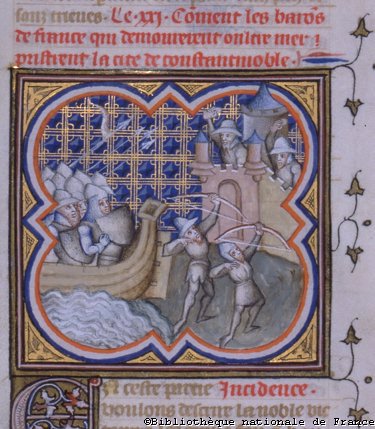 sanz trieues. Le .xxj. Coment les barōs
de france qui demourerent oultre mer
pristrent la cite de constantinoble.
En ceste partie Incidence.
voulons descrire la noble vic
©Bibliothèque nationale de France